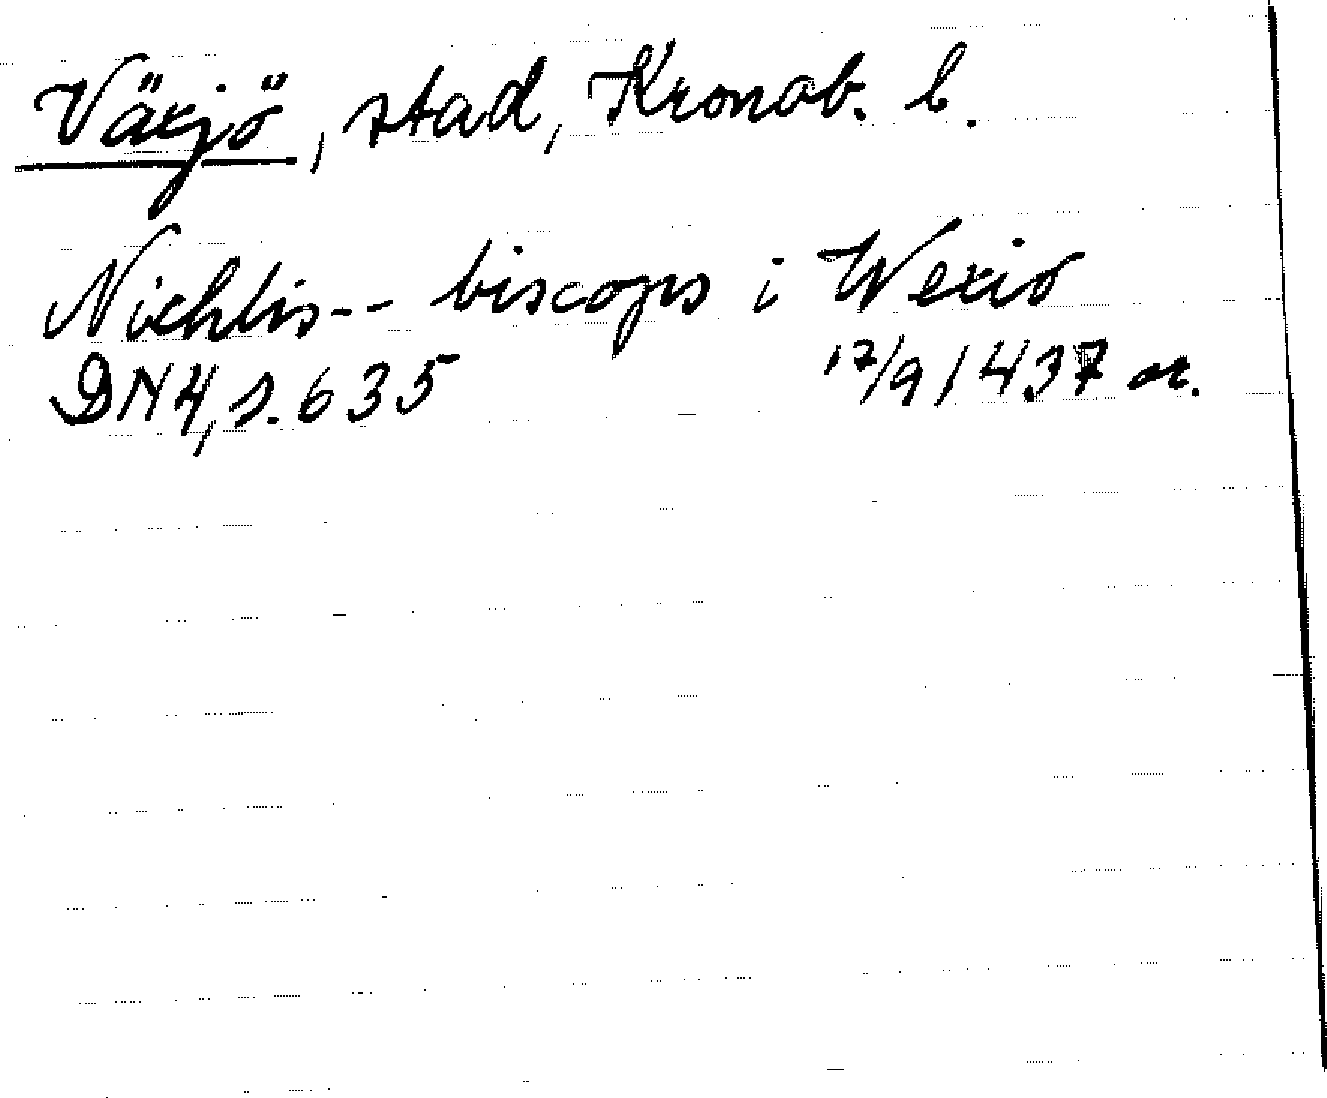 Växjö, stad, Kronob. l.
Nichlis -- biscops i Wexio
DN 4, s. 635 17/9 1437 or.